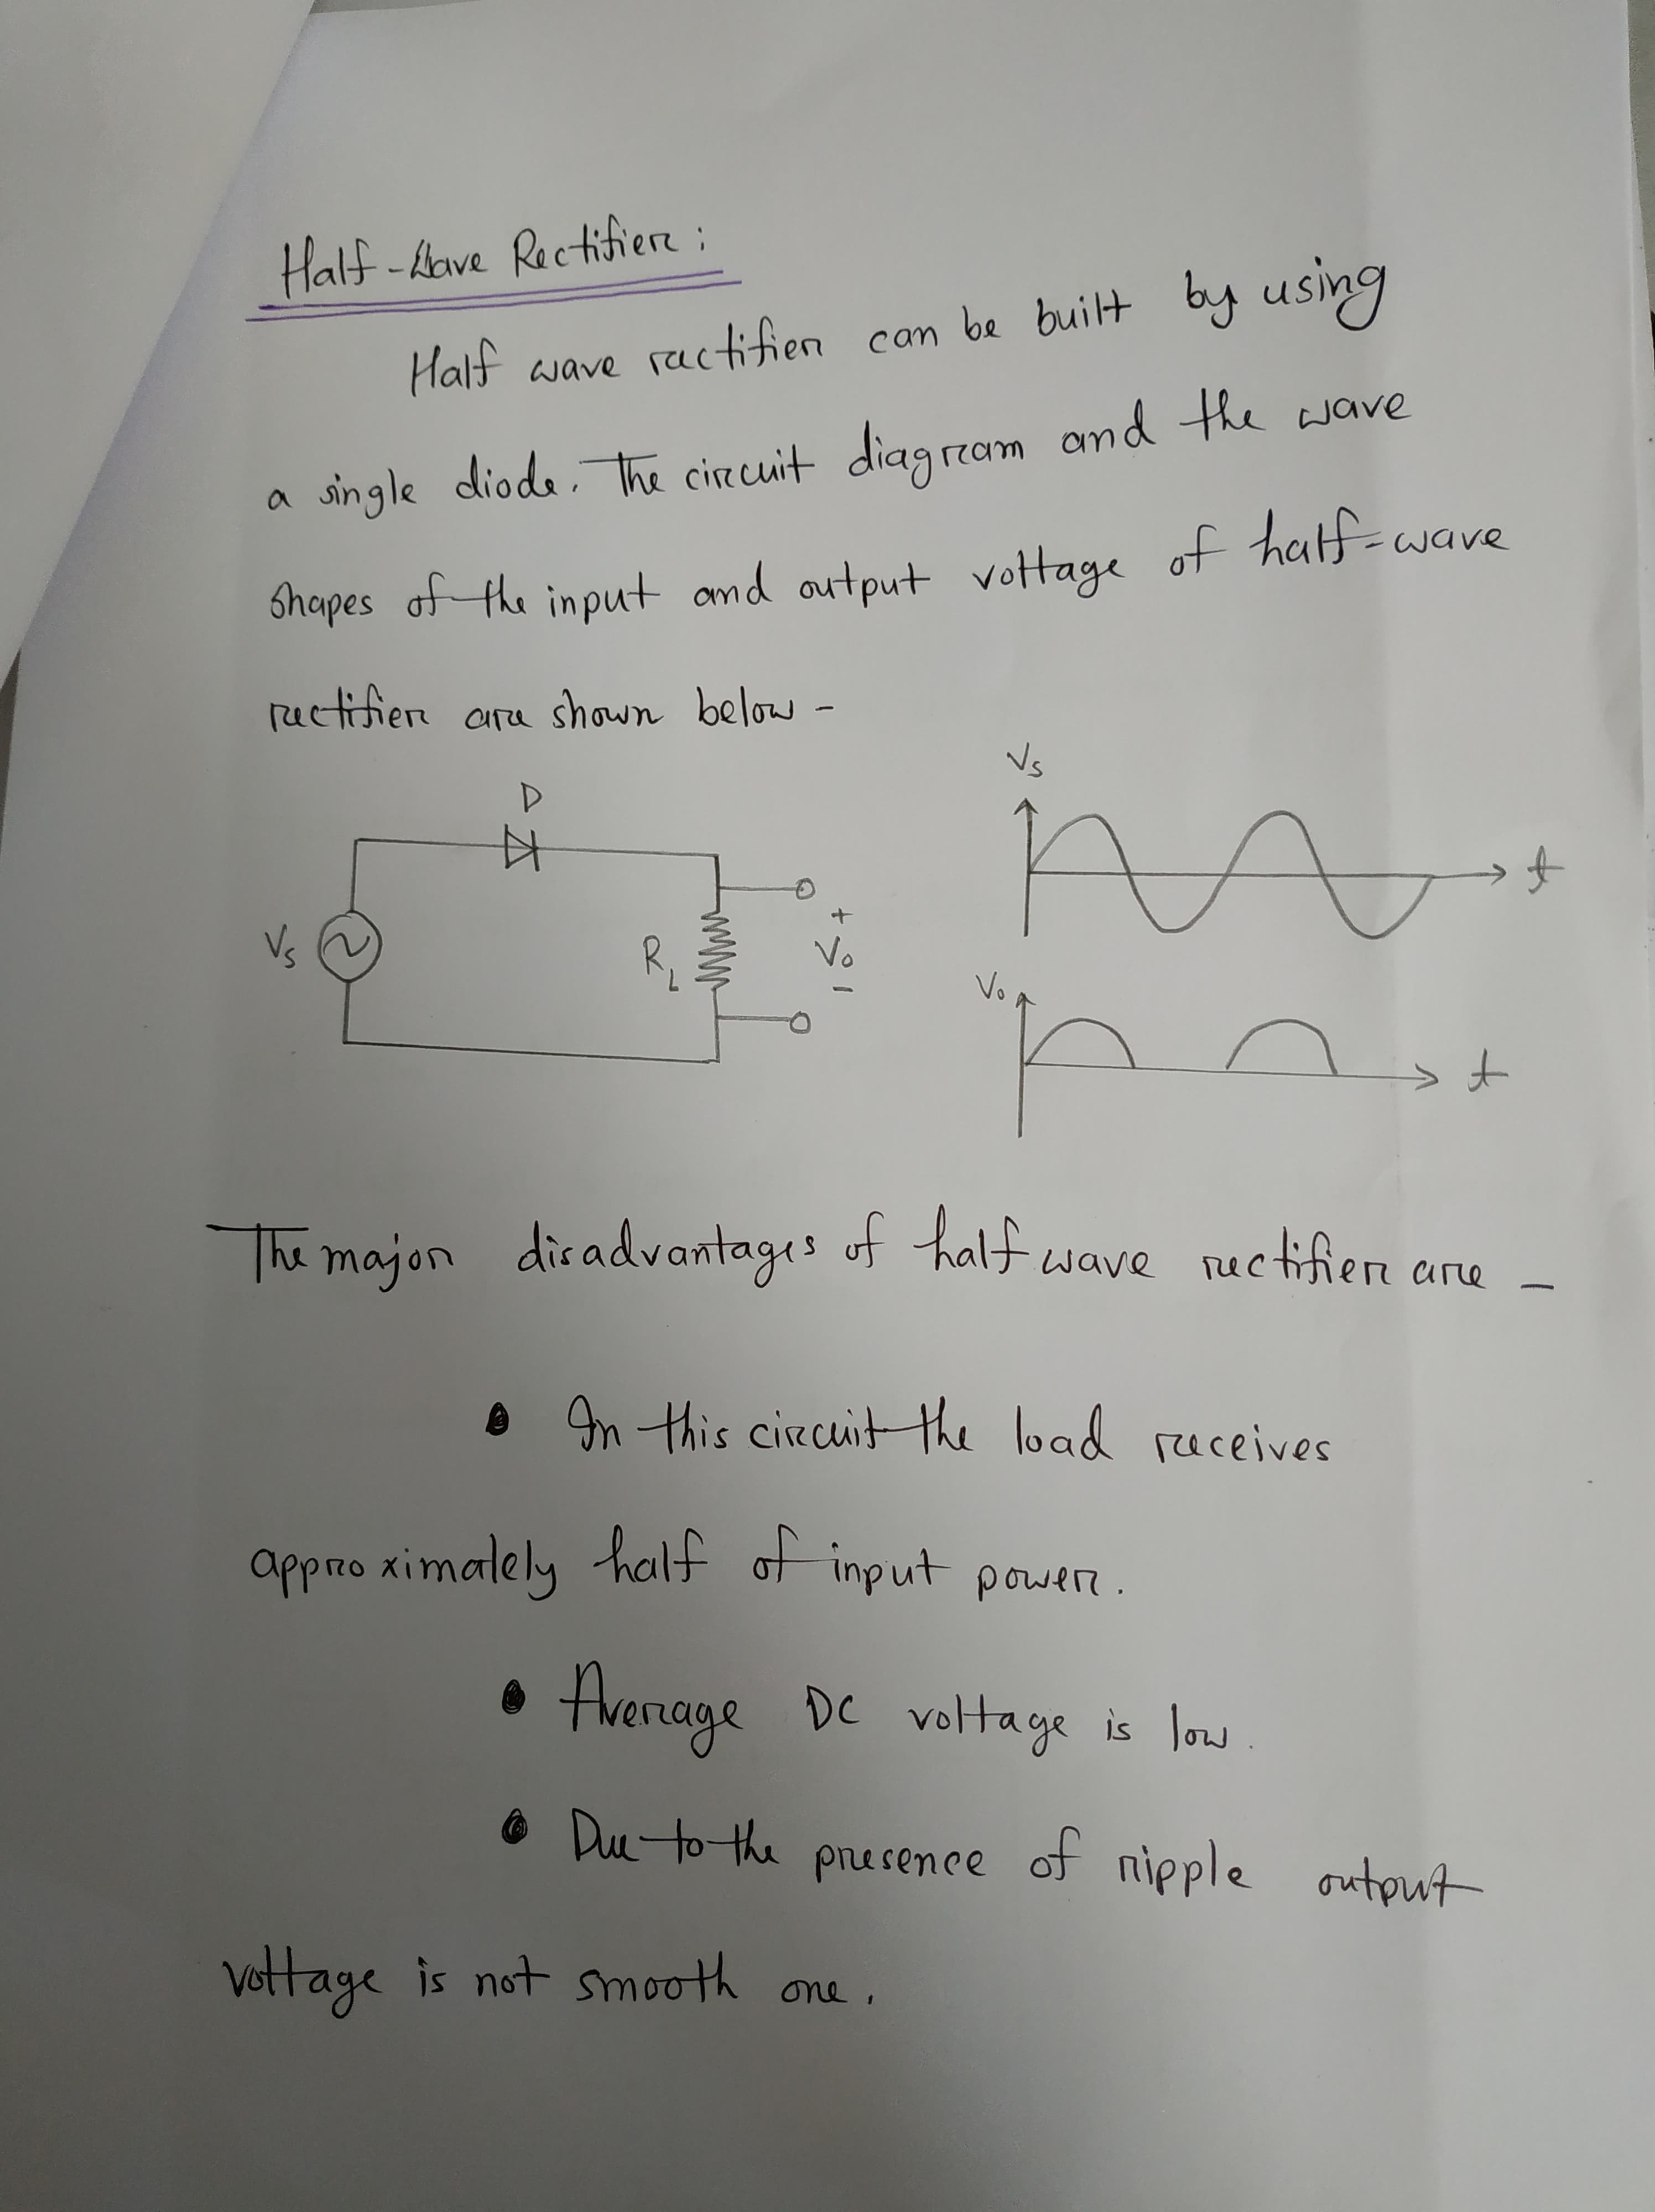 Half-Wave Rectifier:
Half wave rectifier can be built by using
a single diode. The circuit diagram and the wave
shapes of the input and output voltage of half-wave
rectifier are shown below -
D
Vs
RL
+
Vo
-
Vs
t
Vo
t
The major disadvantages of half wave rectifier are -
• In this circuit the load receives
approximately half of input power.
• Average DC voltage is low.
• Due to the presence of ripple output
voltage is not smooth one.